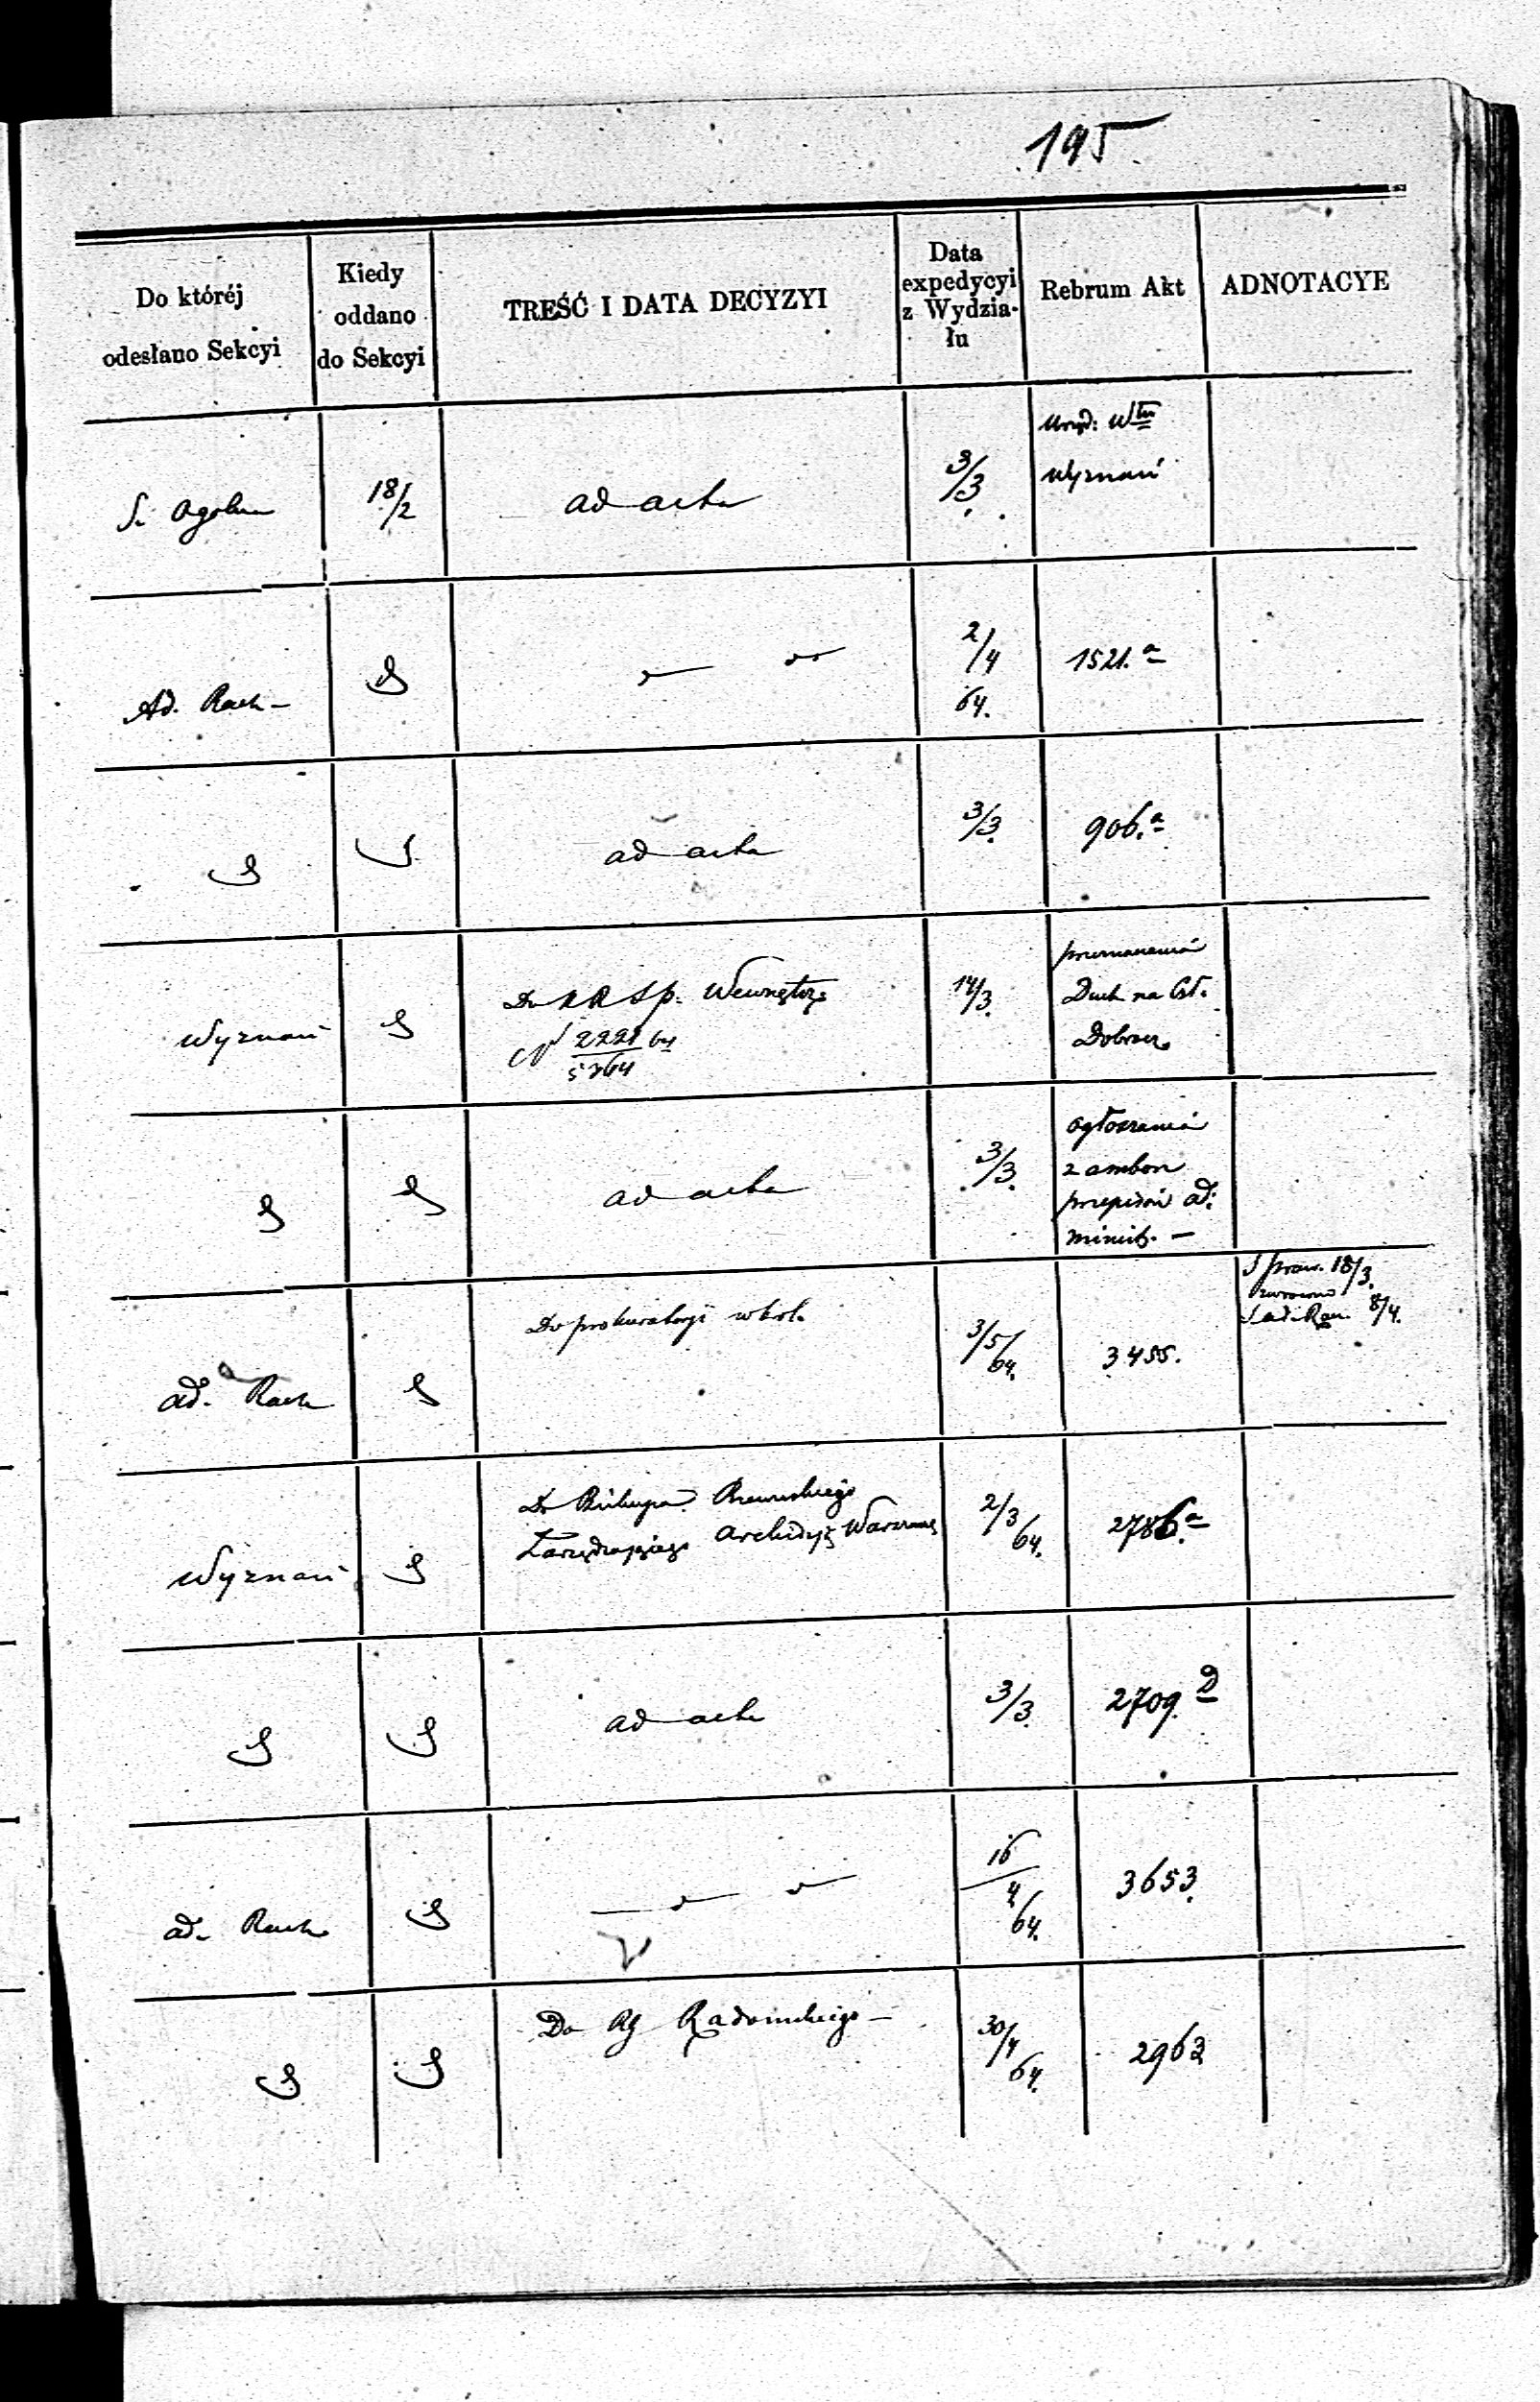 195
Do któréj
odesłano Sekcyi
Kiedy
oddano
do Sekcyi
TREŚĆ I DATA DECYZYI
Data
expedycyi
z Wydzia-
łu
Rebrum Akt
ADNOTACYE
S. Ogolna
18/2
ad acta
3/3
Urzęd: Włu
Wyznań
Ad. Rach
2/4
64.
1521.a
ad acta
3/3.
906.a
Wyznań
Do KR Sp. Wewnętrz:
N 2221 64
5764
14/3.
Duch na
Dobrze
ad acta
3/3.
ogłoszenia
z ambon
przepisów ad:
minist. —
ad. Rach
Do prokuratoryi w król.
3/5/64.
3455.
S praw. 18/3.
zwrócono
8/4.
Wyznań
Do Biskupa Rzewuskiego
Zarządzającego Archidyĕ Warszaws
2/3/64.
2786.a
ad acta
3/3.
2709.D
ad. Rach
16
4/64.
3653.
Do RG Radomskiego —
30/4/64.
2963